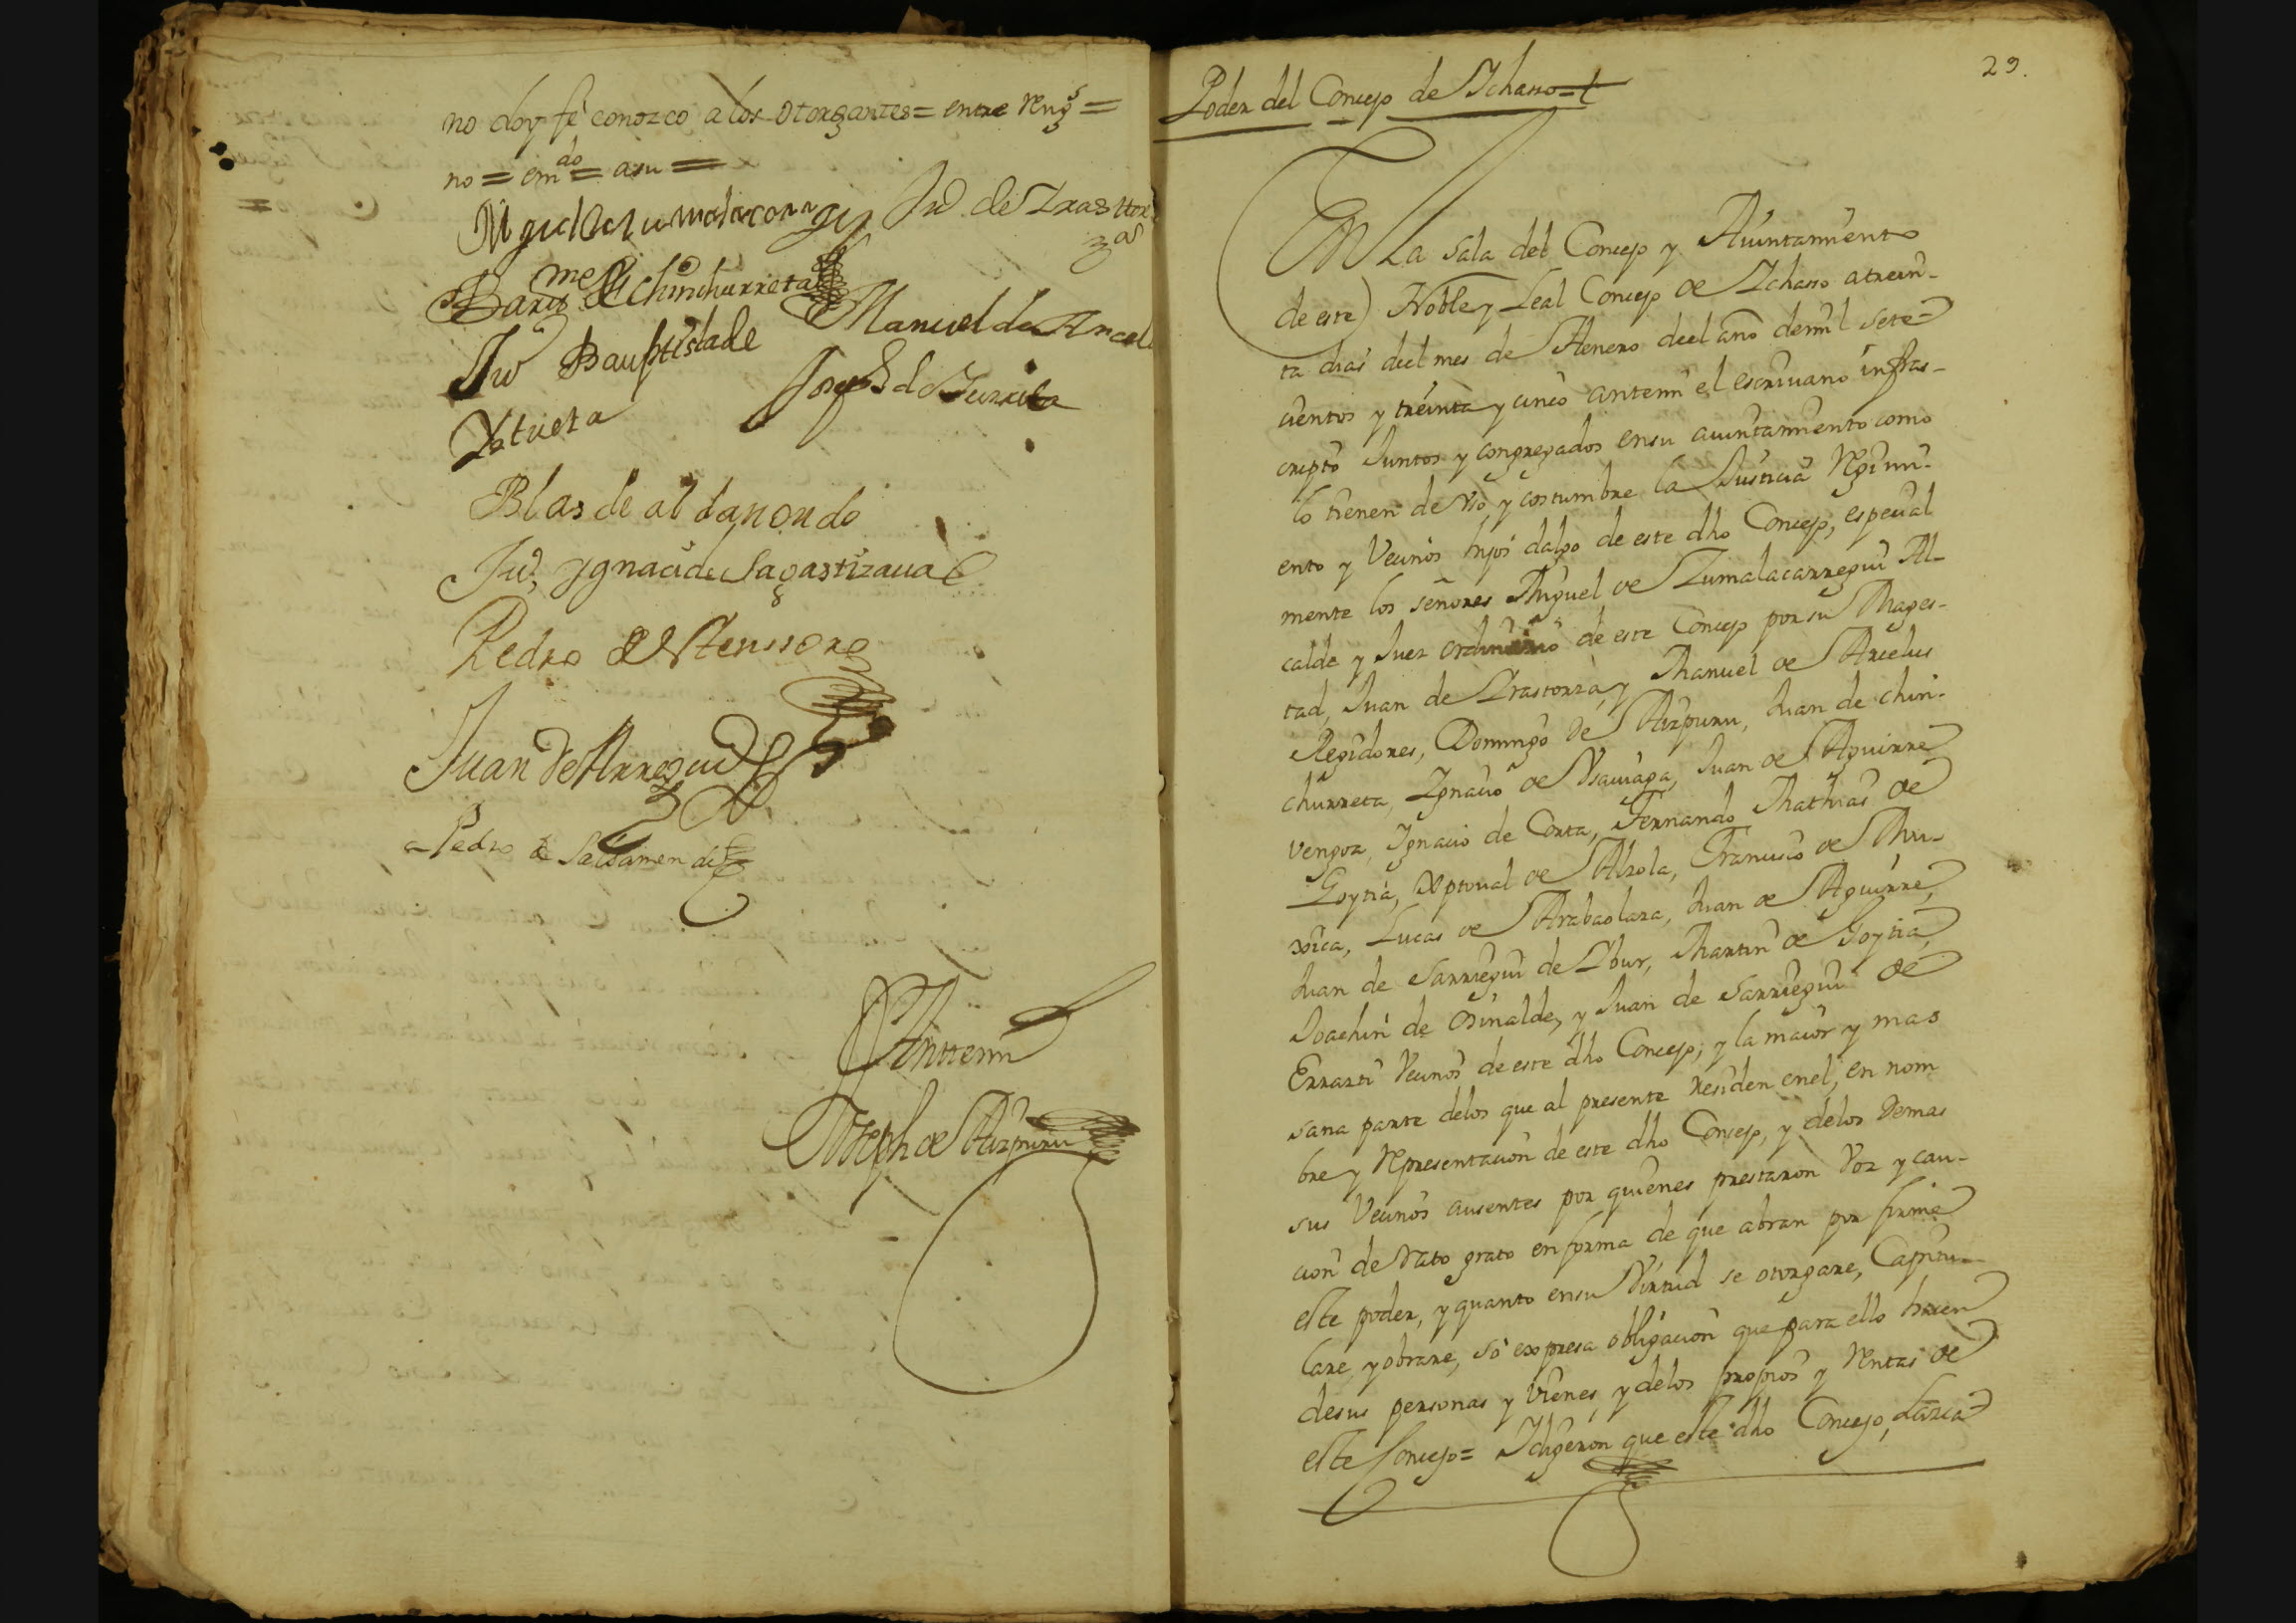 no doy fe conozco a los otorgantes = entre Rengs =
no = emdo = asu =
Miguel de Zumalacarregui Ju de Irastorza
Barme de Chinchurreta Manuel de Arcelus
Jun Bauptista de
Ystueta Joseph de Iturrita
Blas de aldanondo
Ju, Ygnaci de Sagastizaual
Pedro de Atenssoro
Juan de Arregui
Pedro de Salsamendi
Anttemi
Joseph de Aizpuru
29.
Poder del Concejo de Ichasso =
En La sala del Concejo y Aiuntamiento
de este Noble y Leal Concejo de Ichasso a trein-
ta dias del mes de Henero deel año de mil sete-
cientos y treinta y cinco antemi el escriuano infras-
cripto Juntos y congregados ensu aiuntamiento como
lo tienen de Vso, y costumbre la Justicia Regimi-
ento y Vecinos hijos dalgo de este dho Concejo, especial
mente los señores Miguel de Zumalacarregui Al-
calde y Juez ordinario de este Concejo por su Mages-
tad, Juan de Irastorza, y Manuel de Arcelus
Regidores, Domingo de Aizpuru, Juan de chin-
churreta, Ignacio de Vsauiaga, Juan de Aguirre
vengoa, Ignacio de Corta, Fernando Mathias de
Goytia, Xptoual de Alzola, Francisco de Mu-
xica, Lucas de Arabaolaza, Juan de Aguirre,
Juan de Sarriegui de Ibur, Martin de Goytia,
Joachin de Osinalde, y Juan de Sarriegui de
Errazti Vecinos de este dho Concejo, y la maior y mas
sana parte delos que al presente residen enel, en nom
bre y Representacion de este dho Concejo, y delos demas
sus Vecinos ausentes por quienes prestaron Voz y cau-
cion de Rato grato en forma de que abran por firme
este poder, y quanto ensu Virtud se otorgare, Capitu-
lare, y obrare, so expresa obligacion que para ello hacen
desus personas y bienes, y delos propios y Rentas de
este Concejo = I digeron que este dho Concejo,